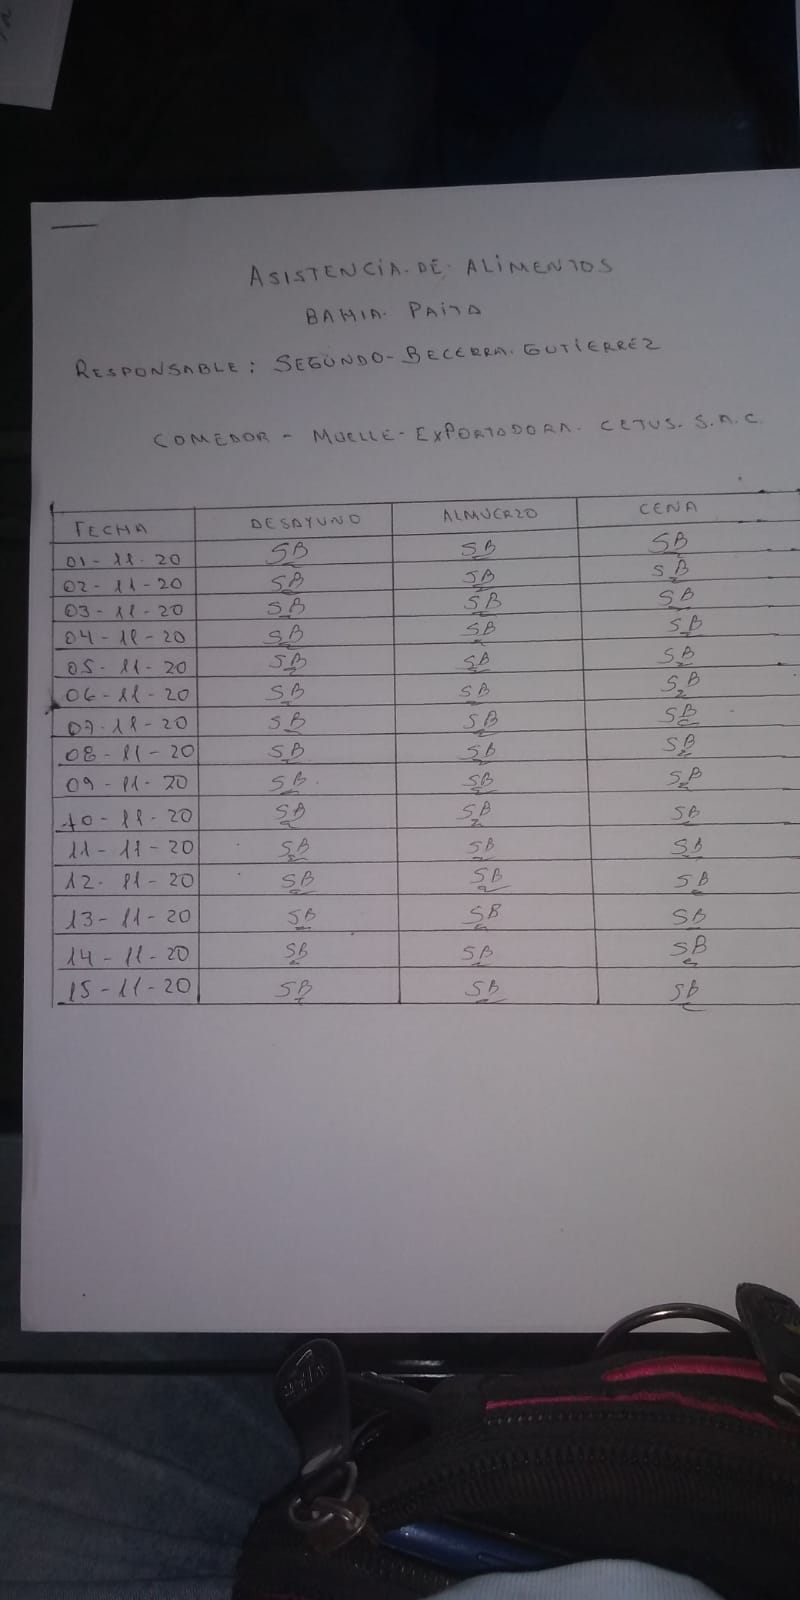 ASISTENCIA. DE. ALIMENTOS
BAHIA. PAITA
RESPONSABLE: SEGUNDO- BECERRA. GUTIERREZ
COMEDOR - MUELLE - EXPORTADORA. CETUS. S.A.C.
FECHA DESAYUNO ALMUERZO CENA
01-11-20 SB SB SB
02-11-20 SB SB SB
03-11-20 SB SB SB
04-11-20 SB SB SB
05-11-20 SB SB SB
06-11-20 SB SB SB
07-11-20 SB SB SB
08-11-20 SB SB SB
09-11-20 SB SB SB
10-11-20 SB SB SB
11-11-20 SB SB SB
12-11-20 SB SB SB
13-11-20 SB SB SB
14-11-20 SB SB SB
15-11-20 SB SB SB